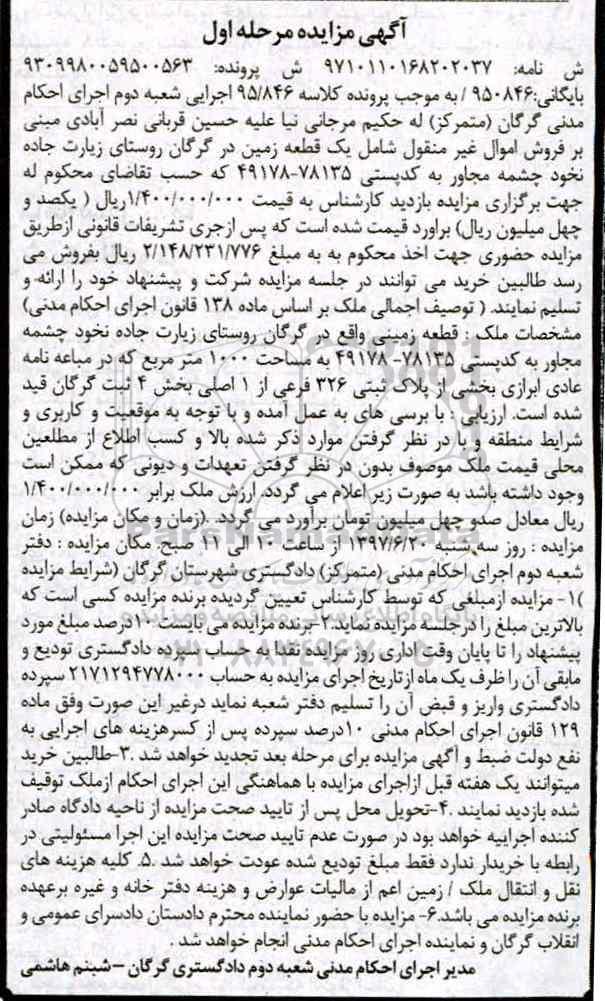 آگهی مزایده مرحله اول
ش نامه: ۹۷۱۰۱۱۰۱۶۸۲۰۲۰۳۷ ش پرونده: ۹۳۰۹۹۸۰۰۵۹۵۰۰۵۶۳
بایگانی:۹۵۰۸۴۶ / به موجب پرونده کلاسه ۹۵/۸۴۶ اجرایی شعبه دوم اجرای احکام
مدنی گرگان (متمرکز) له حکیم مرجانی نیا علیه حسین قربانی نصر آبادی مبنی
بر فروش اموال غیر منقول شامل یک قطعه زمین در گرگان روستای زیارت جاده
نخود چشمه مجاور به کدپستی ۷۸۱۳۵-۴۹۱۷۸ که حسب تقاضای محکوم له
جهت برگزاری مزایده بازدید کارشناس به قیمت ۱/۴۰۰/۰۰۰/۰۰۰ریال ( یکصد و
چهل میلیون ریال) براورد قیمت شده است که پس ازجری تشریفات قانونی ازطریق
مزایده حضوری جهت اخذ محکوم به به مبلغ ۲/۱۴۸/۲۳۱/۷۷۶ ریال بفروش می
رسد طالبین خرید می توانند در جلسه مزایده شرکت و پیشنهاد خود را ارائه و
تسلیم نمایند. ( توصیف اجمالی ملک بر اساس ماده ۱۳۸ قانون اجرای احکام مدنی)
مشخصات ملک : قطعه زمینی واقع در گرگان روستای زیارت جاده نخود چشمه
مجاور به کدپستی ۷۸۱۳۵- ۴۹۱۷۸ به مساحت ۱۰۰۰ متر مربع که در مباعه نامه
عادی ابرازی بخشی از پلاک ثبتی ۳۲۶ فرعی از ۱ اصلی بخش ۴ ثبت گرگان قید
شده است. ارزیابی : با برسی های به عمل آمده و با توجه به موقعیت و کاربری و
شرایط منطقه و با در نظر گرفتن موارد ذکر شده بالا و کسب اطلاع از مطلعین
محلی قیمت ملک موصوف بدون در نظر گرفتن تعهدات و دیونی که ممکن است
وجود داشته باشد به صورت زیر اعلام می گردد. ارزش ملک برابر ۱/۴۰۰/۰۰۰/۰۰۰
ریال معادل صدو چهل میلیون تومان برآورد می گردد. .(زمان و مکان مزایده) زمان
مزایده : روز سه شنبه ۱۳۹۷/۶/۲۰ از ساعت ۱۰ الی ۱۱ صبح. مکان مزایده : دفتر
شعبه دوم اجرای احکام مدنی (متمرکز) دادگستری شهرستان گرگان (شرایط مزایده
)۱- مزایده ازمبلغی که توسط کارشناس تعیین گردیده برنده مزایده کسی است که
بالاترین مبلغ را درجلسه مزایده نماید.۲-برنده مزایده می بایست ۱۰درصد مبلغ مورد
پیشنهاد را تا پایان وقت اداری روز مزایده نقدا به حساب سپرده دادگستری تودیع و
مابقی آن را ظرف یک ماه ازتاریخ اجرای مزایده به حساب ۲۱۷۱۲۹۴۷۷۸۰۰۰ سپرده
دادگستری واریز و قبض آن را تسلیم دفتر شعبه نماید درغیر این صورت وفق ماده
۱۲۹ قانون اجرای احکام مدنی ۱۰درصد سپرده پس از کسرهزینه های اجرایی به
نفع دولت ضبط و آگهی مزایده برای مرحله بعد تجدید خواهد شد .۳-طالبین خرید
میتوانند یک هفته قبل ازاجرای مزایده با هماهنگی این اجرای احکام ازملک توقیف
شده بازدید نمایند .۴-تحویل محل پس از تایید صحت مزایده از ناحیه دادگاه صادر
کننده اجراییه خواهد بود در صورت عدم تایید صحت مزایده این اجرا مسئولیتی در
رابطه با خریدار ندارد فقط مبلغ تودیع شده عودت خواهد شد .۵. کلیه هزینه های
نقل و انتقال ملک / زمین اعم از مالیات عوارض و هزینه دفتر خانه و غیره برعهده
برنده مزایده می باشد.۶- مزایده با حضور نماینده محترم دادستان دادسرای عمومی و
انقلاب گرگان و نماینده اجرای احکام مدنی انجام خواهد شد .
مدیر اجرای احکام مدنی شعبه دوم دادگستری گرگان –شبنم هاشمی